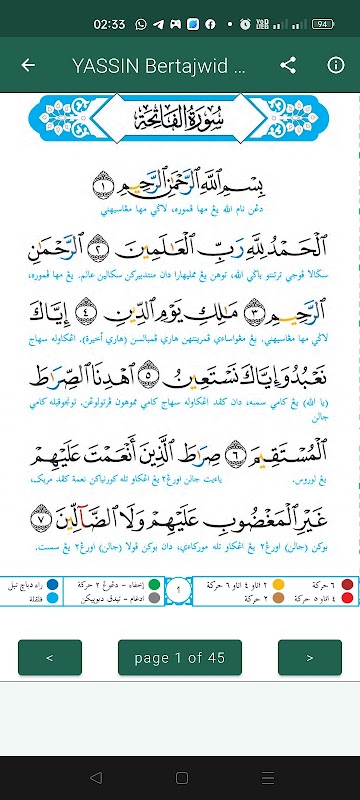 02:33
VoD LTE1
94
YASSIN Bertajwid ...
سُورَةُ الْفَاتِحَةِ
بِسْمِ اللَّهِ الرَّحْمَٰنِ الرَّحِيمِ ١
دڠن نام الله يڠ مها ڤموره، لاݢي مها مڠاسيهني
الْحَمْدُ لِلَّهِ رَبِّ الْعَالَمِينَ ٢ الرَّحْمَٰنِ
سݢالا ڤوجي ترتنتو باݢي الله، توهن يڠ ممليهارا دان منتدبيركن سكالين عالم. يڠ مها ڤموره،
الرَّحِيمِ ٣ مَالِكِ يَوْمِ الدِّينِ ٤ إِيَّاكَ
لاݢي مها مڠاسيهني. يڠ مڠواساءي ڤمرينتهن هاري ڤمبالسن (هاري أخيرة). اڠكاوله سهاج
نَعْبُدُ وَإِيَّاكَ نَسْتَعِينُ ٥ اهْدِنَا الصِّرَاطَ
(يا الله) يڠ كامي سمبه، دان كڤد اڠكاوله سهاج كامي مموهون ڤرتولوڠن. تونجوقيله كامي
جالن
الْمُسْتَقِيمَ ٦ صِرَاطَ الَّذِينَ أَنْعَمْتَ عَلَيْهِمْ
يڠ لوروس. يائيت جالن اورڠ٢ يڠ اڠكاو تله كورنياكن نعمة كڤد مريك،
غَيْرِ الْمَغْضُوبِ عَلَيْهِمْ وَلَا الضَّالِّينَ ٧
بوكن (جالن) اورڠ٢ يڠ اڠكاو تله موركاءي، دان بوكن ڤولا (جالن) اورڠ٢ يڠ سست.
٦ حركة
٢ اتاو ٤ اتاو ٦ حركة
إخفاء - دڠوڠ ٢ حركة
راء دباچ تبل
٤ اتاو ٥ حركة
٢ حركة
ادغام - تيدق دبوڽيكن
قلقلة
١
<
page 1 of 45
>